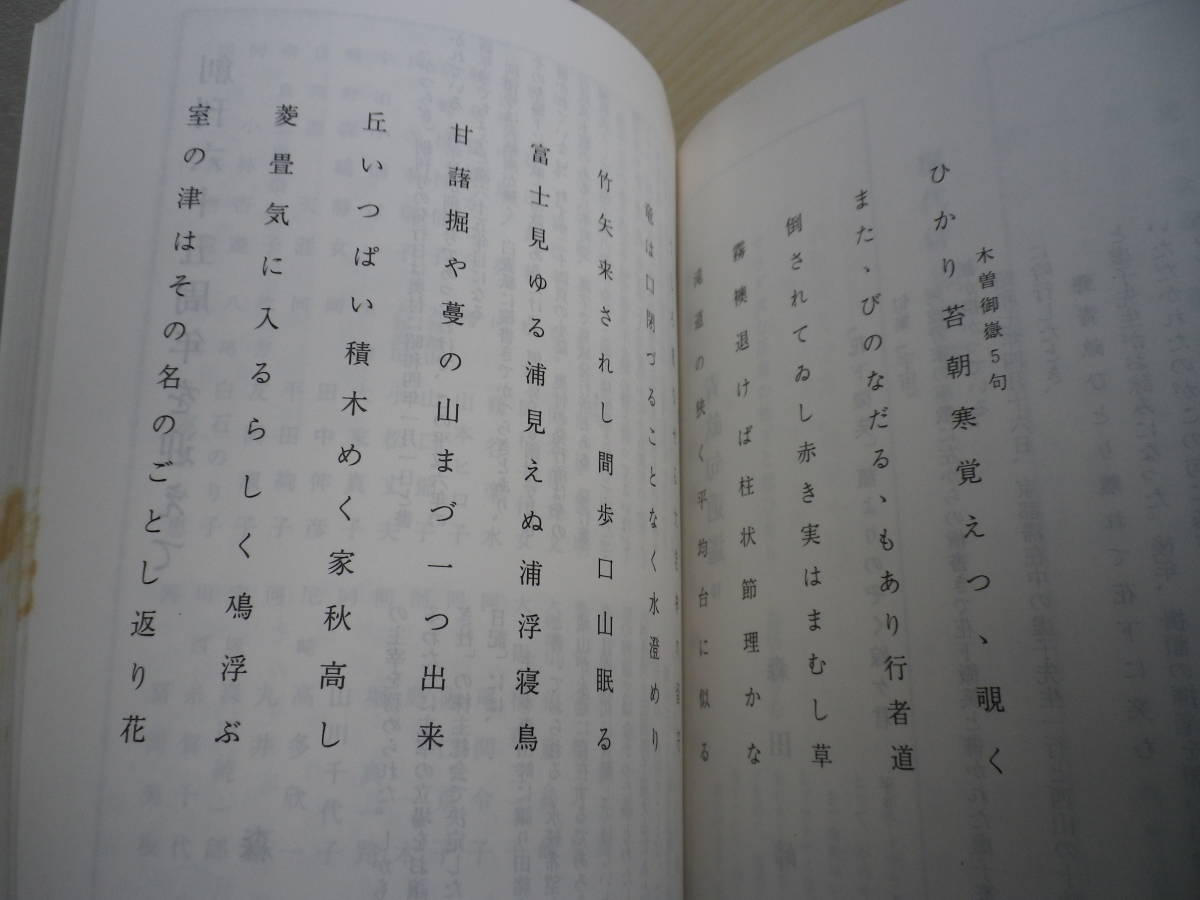 木曽御嶽5句
ひかり苔朝寒覚えつゝ覗く
またゝびのなだるゝもあり行者道
倒されてゐし赤き実はまむし草
霧襖退けば柱状節理かな
滝道の狭く平均台に似る
は口閉づることなく水澄めり
竹矢来されし間歩口山眠る
富士見ゆる浦見えぬ浦浮寝鳥
甘藷掘や蔓の山まづ一つ出来
丘いつぱい積木めく家秋高し
菱畳気に入るらしく鳰浮ぶ
室の津はその名のごとし返り花